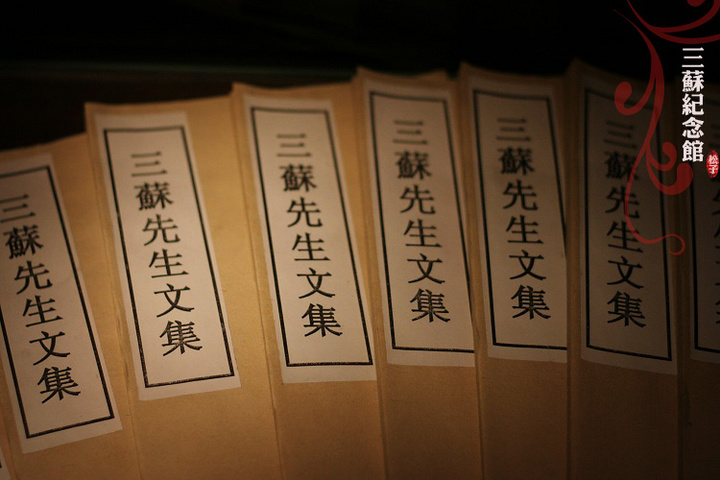 三蘇紀念館
松子
三蘇先生文集
三蘇先生文集
三蘇先生文集
三蘇先生文集
三蘇先生文集
三蘇先生文集